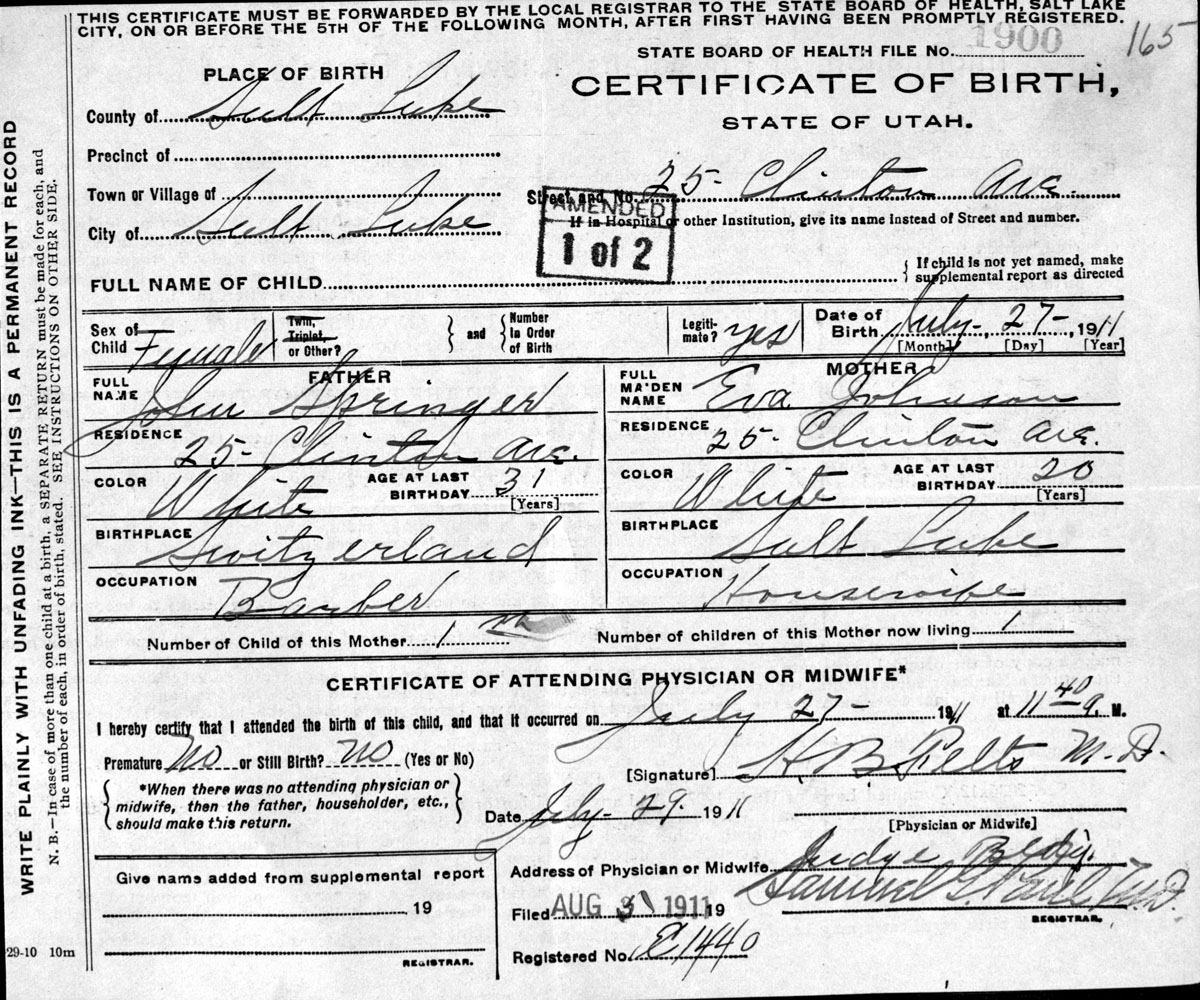 THIS CERTIFICATE MUST BE FORWARDED BY THE LOCAL REGISTRAR TO THE STATE BOARD OF HEALTH, SALT LAKE
CITY, ON OR BEFORE THE 5TH OF THE FOLLOWING MONTH, AFTER FIRST HAVING BEEN PROMPTLY REGISTERED.
165
STATE BOARD OF HEALTH FILE No. 1900
PLACE OF BIRTH
CERTIFICATE OF BIRTH,
STATE OF UTAH.
County of Salt Lake
Precinct of
Town or Village of
Street and No. 25 Clinton Ave.
City of Salt Lake
If in Hospital or other Institution, give its name instead of Street and number.
AMENDED
1 of 2
FULL NAME OF CHILD
{ If child is not yet named, make
supplemental report as directed
Sex of Child Female
Twin, Triplet, or Other?
} and {
Number in Order of Birth
Legitimate? yes
Date of Birth July 27 1911
[Month] [Day] [Year]
FATHER
FULL NAME John Springer
RESIDENCE 25 Clinton Ave.
COLOR White AGE AT LAST BIRTHDAY 31 [Years]
BIRTHPLACE Switzerland
OCCUPATION Barber
MOTHER
FULL MAIDEN NAME Eva Johnson
RESIDENCE 25 Clinton Ave.
COLOR White AGE AT LAST BIRTHDAY 20 [Years]
BIRTHPLACE Salt Lake
OCCUPATION Housewife
Number of Child of this Mother 1 Number of children of this Mother now living 1
CERTIFICATE OF ATTENDING PHYSICIAN OR MIDWIFE*
I hereby certify that I attended the birth of this child, and that it occurred on July 27 1911 at 11 40 a. M.
Premature No or Still Birth? No (Yes or No)
[Signature] H B Felts M.D.
{ *When there was no attending physician or
midwife, then the father, householder, etc.,
should make this return. }
Date July 29. 1911
[Physician or Midwife]
Address of Physician or Midwife Judge Bldg.
Give name added from supplemental report
19
REGISTRAR.
Filed AUG 31 1911 19
Samuel G. Paul M.D.
REGISTRAR.
Registered No. E1440
29-10 10m
WRITE PLAINLY WITH UNFADING INK—THIS IS A PERMANENT RECORD
N. B.—In case of more than one child at a birth, a SEPARATE RETURN must be made for each, and
the number of each, in order of birth, stated. SEE INSTRUCTIONS ON OTHER SIDE.